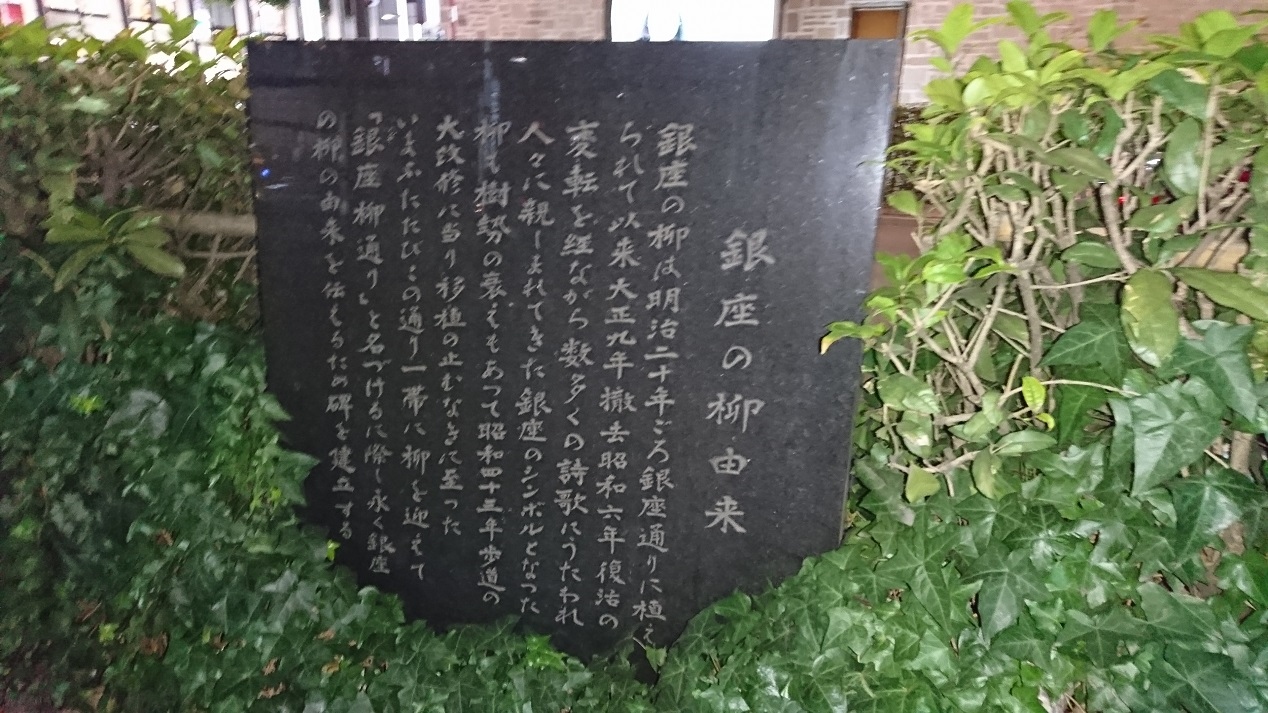 銀座の柳由来
銀座の柳は明治二十年ごろ銀座通りに植え
られて以来大正九年撤去昭和六年復活の
変転を経ながら数多くの詩歌にうたわれ
人々に親しまれてきた銀座のシンボルとなった
柳も樹勢の衰えもあって昭和四十三年歩道の
大改修に当り移植の止むなきに至った
いまふたたびこの通り一帯に柳を迎えて
「銀座柳通り」と名づけるに際し永く銀座
の柳の由来を伝えるため碑を建立する